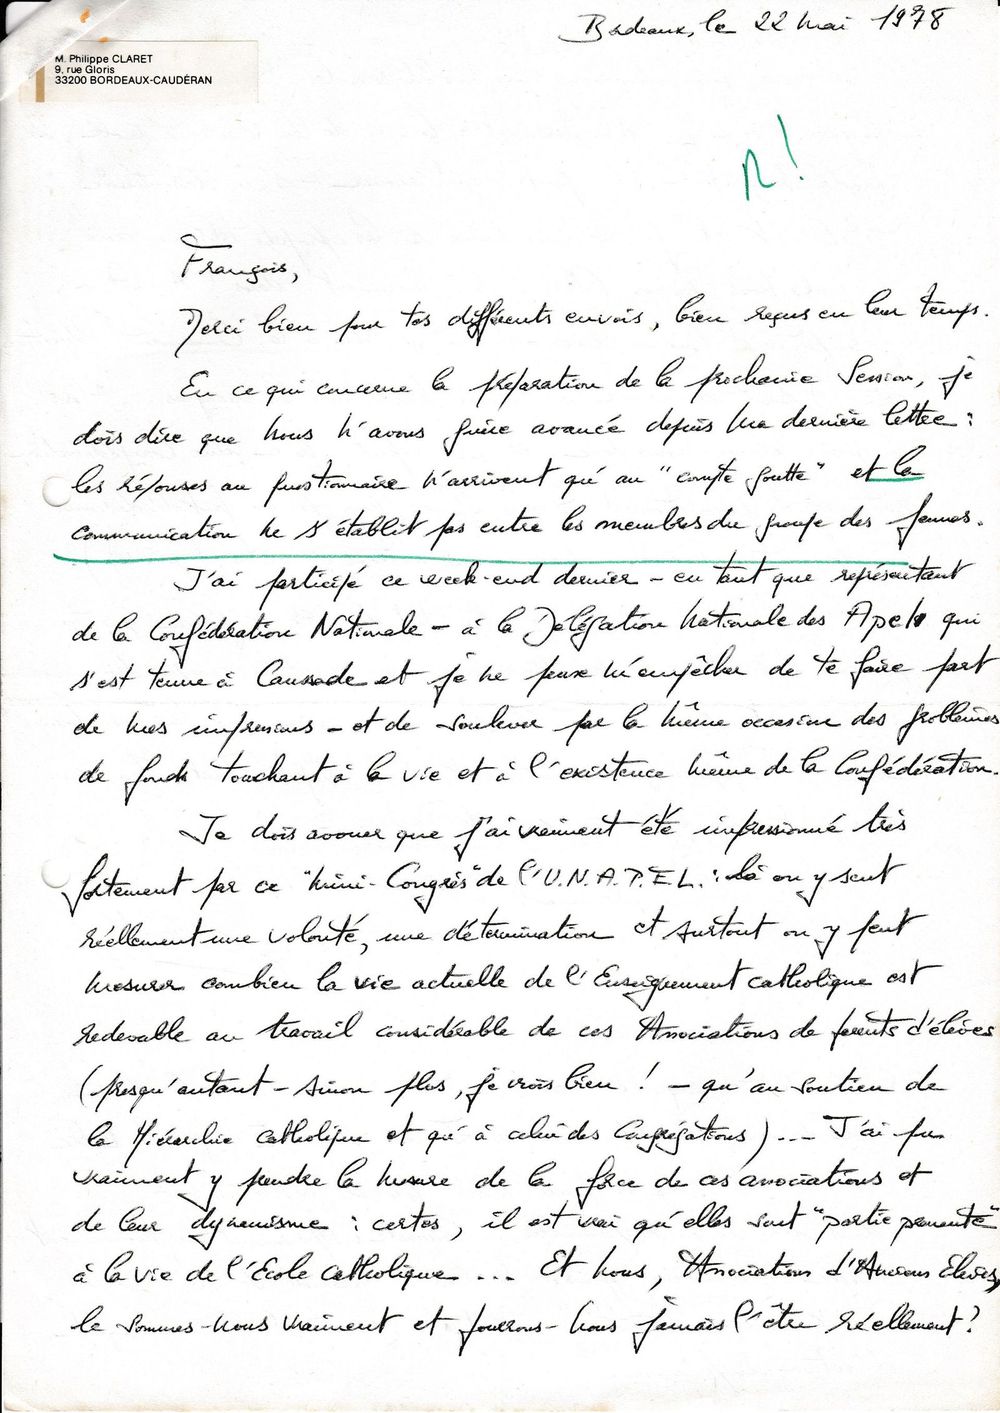 Bordeaux, le 22 Mai 1978
M. Philippe CLARET
9, rue Gloris
33200 BORDEAUX-CAUDÉRAN
R!
François,
Merci bien pour tes différents envois, bien reçus en leur temps.
En ce qui concerne la préparation de la prochaine Session, je
dois dire que nous n'avons guère avancé depuis ma dernière lettre :
les réponses au questionnaire n'arrivent qu'au "compte goutte" et la
communication ne s'établit pas entre les membres du groupe des jeunes.
J'ai participé ce week-end dernier - en tant que représentant
de la Confédération Nationale - à la Délégation Nationale des Apels qui
s'est tenue à Caussade et je ne peux m'empêcher de te faire part
de mes impressions - et de soulever par la même occasion des problèmes
de fonds touchant à la vie et à l'existence même de la Confédération.
Je dois avouer que j'ai vraiment été impressionné très
fortement par ce "mini-Congrès" de l'U.N.A.P.E.L. : là on y sent
réellement une volonté, une détermination et surtout on y peut
mesurer combien la vie actuelle de l'Enseignement catholique est
redevable au travail considérable de ces Associations de parents d'élèves
(presqu'autant - sinon plus, je crois bien ! - qu'au soutien de
la Hiérarchie catholique et qu'à celui des Congrégations) ... J'ai pu
vraiment y prendre la mesure de la force de ces associations et
de leur dynamisme : certes, il est vrai qu'elles sont "partie prenante"
à la vie de l'Ecole catholique ... Et nous, Associations d'Anciens Elèves,
le sommes-nous vraiment et pourrons-nous jamais l'être réellement ?